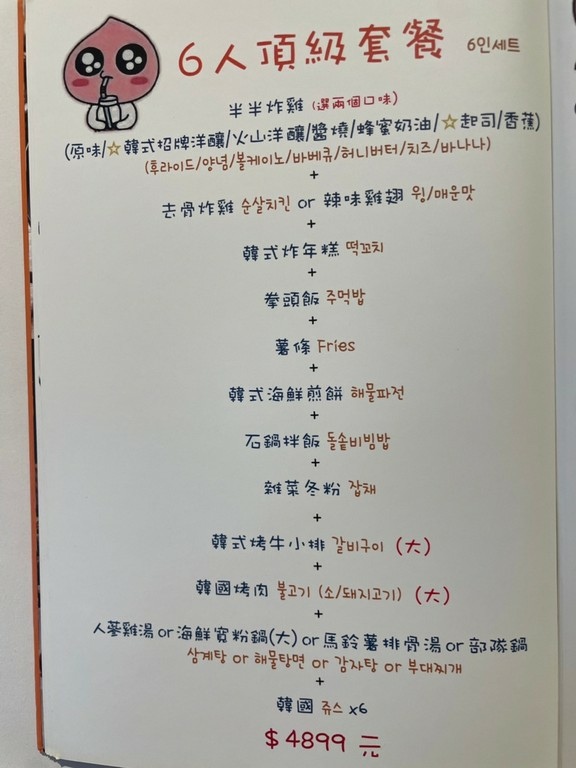 6人頂級套餐 6인세트
半半炸雞 (選兩個口味)
(原味/☆韓式招牌洋釀/火山洋釀/醬燒/蜂蜜奶油/☆起司/香蕉)
(후라이드/양념/볼케이노/바베큐/허니버터/치즈/바나나)
+
去骨炸雞 순살치킨 or 辣味雞翅 윙/매운맛
+
韓式炸年糕 떡꼬치
+
拳頭飯 주먹밥
+
薯條 Fries
+
韓式海鮮煎餅 해물파전
+
石鍋拌飯 돌솥비빔밥
+
雜菜冬粉 잡채
+
韓式烤牛小排 갈비구이 (大)
+
韓國烤肉 불고기 (소/돼지고기) (大)
+
人蔘雞湯or海鮮寬粉鍋(大)or馬鈴薯排骨湯or部隊鍋
삼계탕 or 해물탕면 or 감자탕 or 부대찌개
+
韓國 쥬스 x6
$4899 元